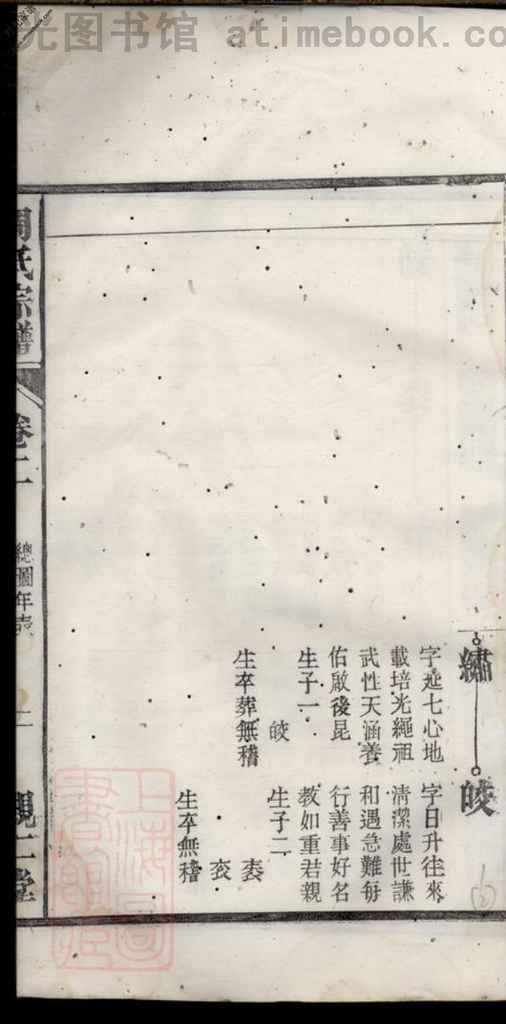 光图书馆 atimebook.co
繡
字延七心地
載培光繩祖
武性天涵養
佑啟後昆
生子一
皎
生卒葬無稽
皎
字日升往來
清潔處世謙
和遇急難每
行善事好名
教如重若親
生子二
袠
衮
生卒無稽
周氏宗譜
卷二
總圖年表
二
親仁堂
上海圖書館藏